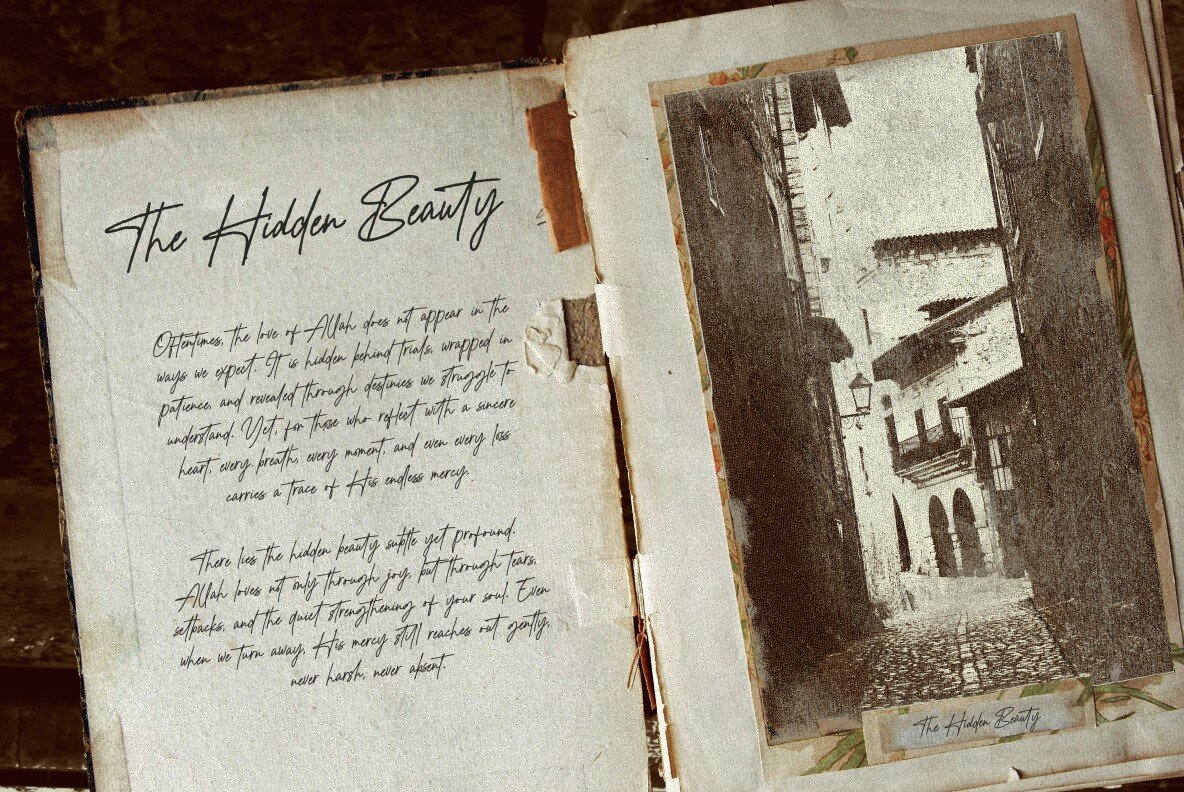 The Hidden Beauty
Oftentimes, the love of Allah does not appear in the
ways we expect. It is hidden behind trials, wrapped in
patience, and revealed through destinies we struggle to
understand. Yet, for those who reflect with a sincere
heart, every breath, every moment, and even every loss
carries a trace of His endless mercy.
There lies the hidden beauty subtle yet profound.
Allah loves not only through joy, but through tears,
setbacks, and the quiet strengthening of your soul. Even
when we turn away, His mercy still reaches out gently,
never harsh, never absent.
The Hidden Beauty